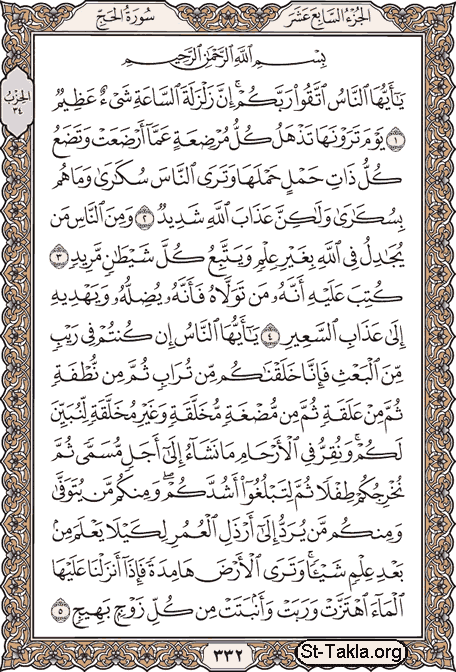 الجزء السابع عشر
سورة الحج
الحزب
٣٤
بِسْمِ اللَّهِ الرَّحْمَٰنِ الرَّحِيمِ
يَٰٓأَيُّهَا ٱلنَّاسُ ٱتَّقُوا۟ رَبَّكُمْ ۚ إِنَّ زَلْزَلَةَ ٱلسَّاعَةِ شَىْءٌ عَظِيمٌ
١ يَوْمَ تَرَوْنَهَا تَذْهَلُ كُلُّ مُرْضِعَةٍ عَمَّآ أَرْضَعَتْ وَتَضَعُ
كُلُّ ذَاتِ حَمْلٍ حَمْلَهَا وَتَرَى ٱلنَّاسَ سُكَٰرَىٰ وَمَا هُم
بِسُكَٰرَىٰ وَلَٰكِنَّ عَذَابَ ٱللَّهِ شَدِيدٌ ٢ وَمِنَ ٱلنَّاسِ مَن
يُجَٰدِلُ فِى ٱللَّهِ بِغَيْرِ عِلْمٍ وَيَتَّبِعُ كُلَّ شَيْطَٰنٍ مَّرِيدٍ ٣
كُتِبَ عَلَيْهِ أَنَّهُۥ مَن تَوَلَّاهُ فَأَنَّهُۥ يُضِلُّهُۥ وَيَهْدِيهِ
إِلَىٰ عَذَابِ ٱلسَّعِيرِ ٤ يَٰٓأَيُّهَا ٱلنَّاسُ إِن كُنتُمْ فِى رَيْبٍ
مِّنَ ٱلْبَعْثِ فَإِنَّا خَلَقْنَٰكُم مِّن تُرَابٍ ثُمَّ مِن نُّطْفَةٍ
ثُمَّ مِنْ عَلَقَةٍ ثُمَّ مِن مُّضْغَةٍ مُّخَلَّقَةٍ وَغَيْرِ مُخَلَّقَةٍ لِّنُبَيِّنَ
لَكُمْ ۚ وَنُقِرُّ فِى ٱلْأَرْحَامِ مَا نَشَآءُ إِلَىٰٓ أَجَلٍ مُّسَمًّى ثُمَّ
نُخْرِجُكُمْ طِفْلًا ثُمَّ لِتَبْلُغُوٓا۟ أَشُدَّكُمْ ۖ وَمِنكُم مَّن يُتَوَفَّىٰ
وَمِنكُم مَّن يُرَدُّ إِلَىٰٓ أَرْذَلِ ٱلْعُمُرِ لِكَيْلَا يَعْلَمَ مِنۢ
بَعْدِ عِلْمٍ شَيْـًٔا ۚ وَتَرَى ٱلْأَرْضَ هَامِدَةً فَإِذَآ أَنزَلْنَا عَلَيْهَا
ٱلْمَآءَ ٱهْتَزَّتْ وَرَبَتْ وَأَنۢبَتَتْ مِن كُلِّ زَوْجٍۭ بَهِيجٍ ٥
٣٣٢
St-Takla.org